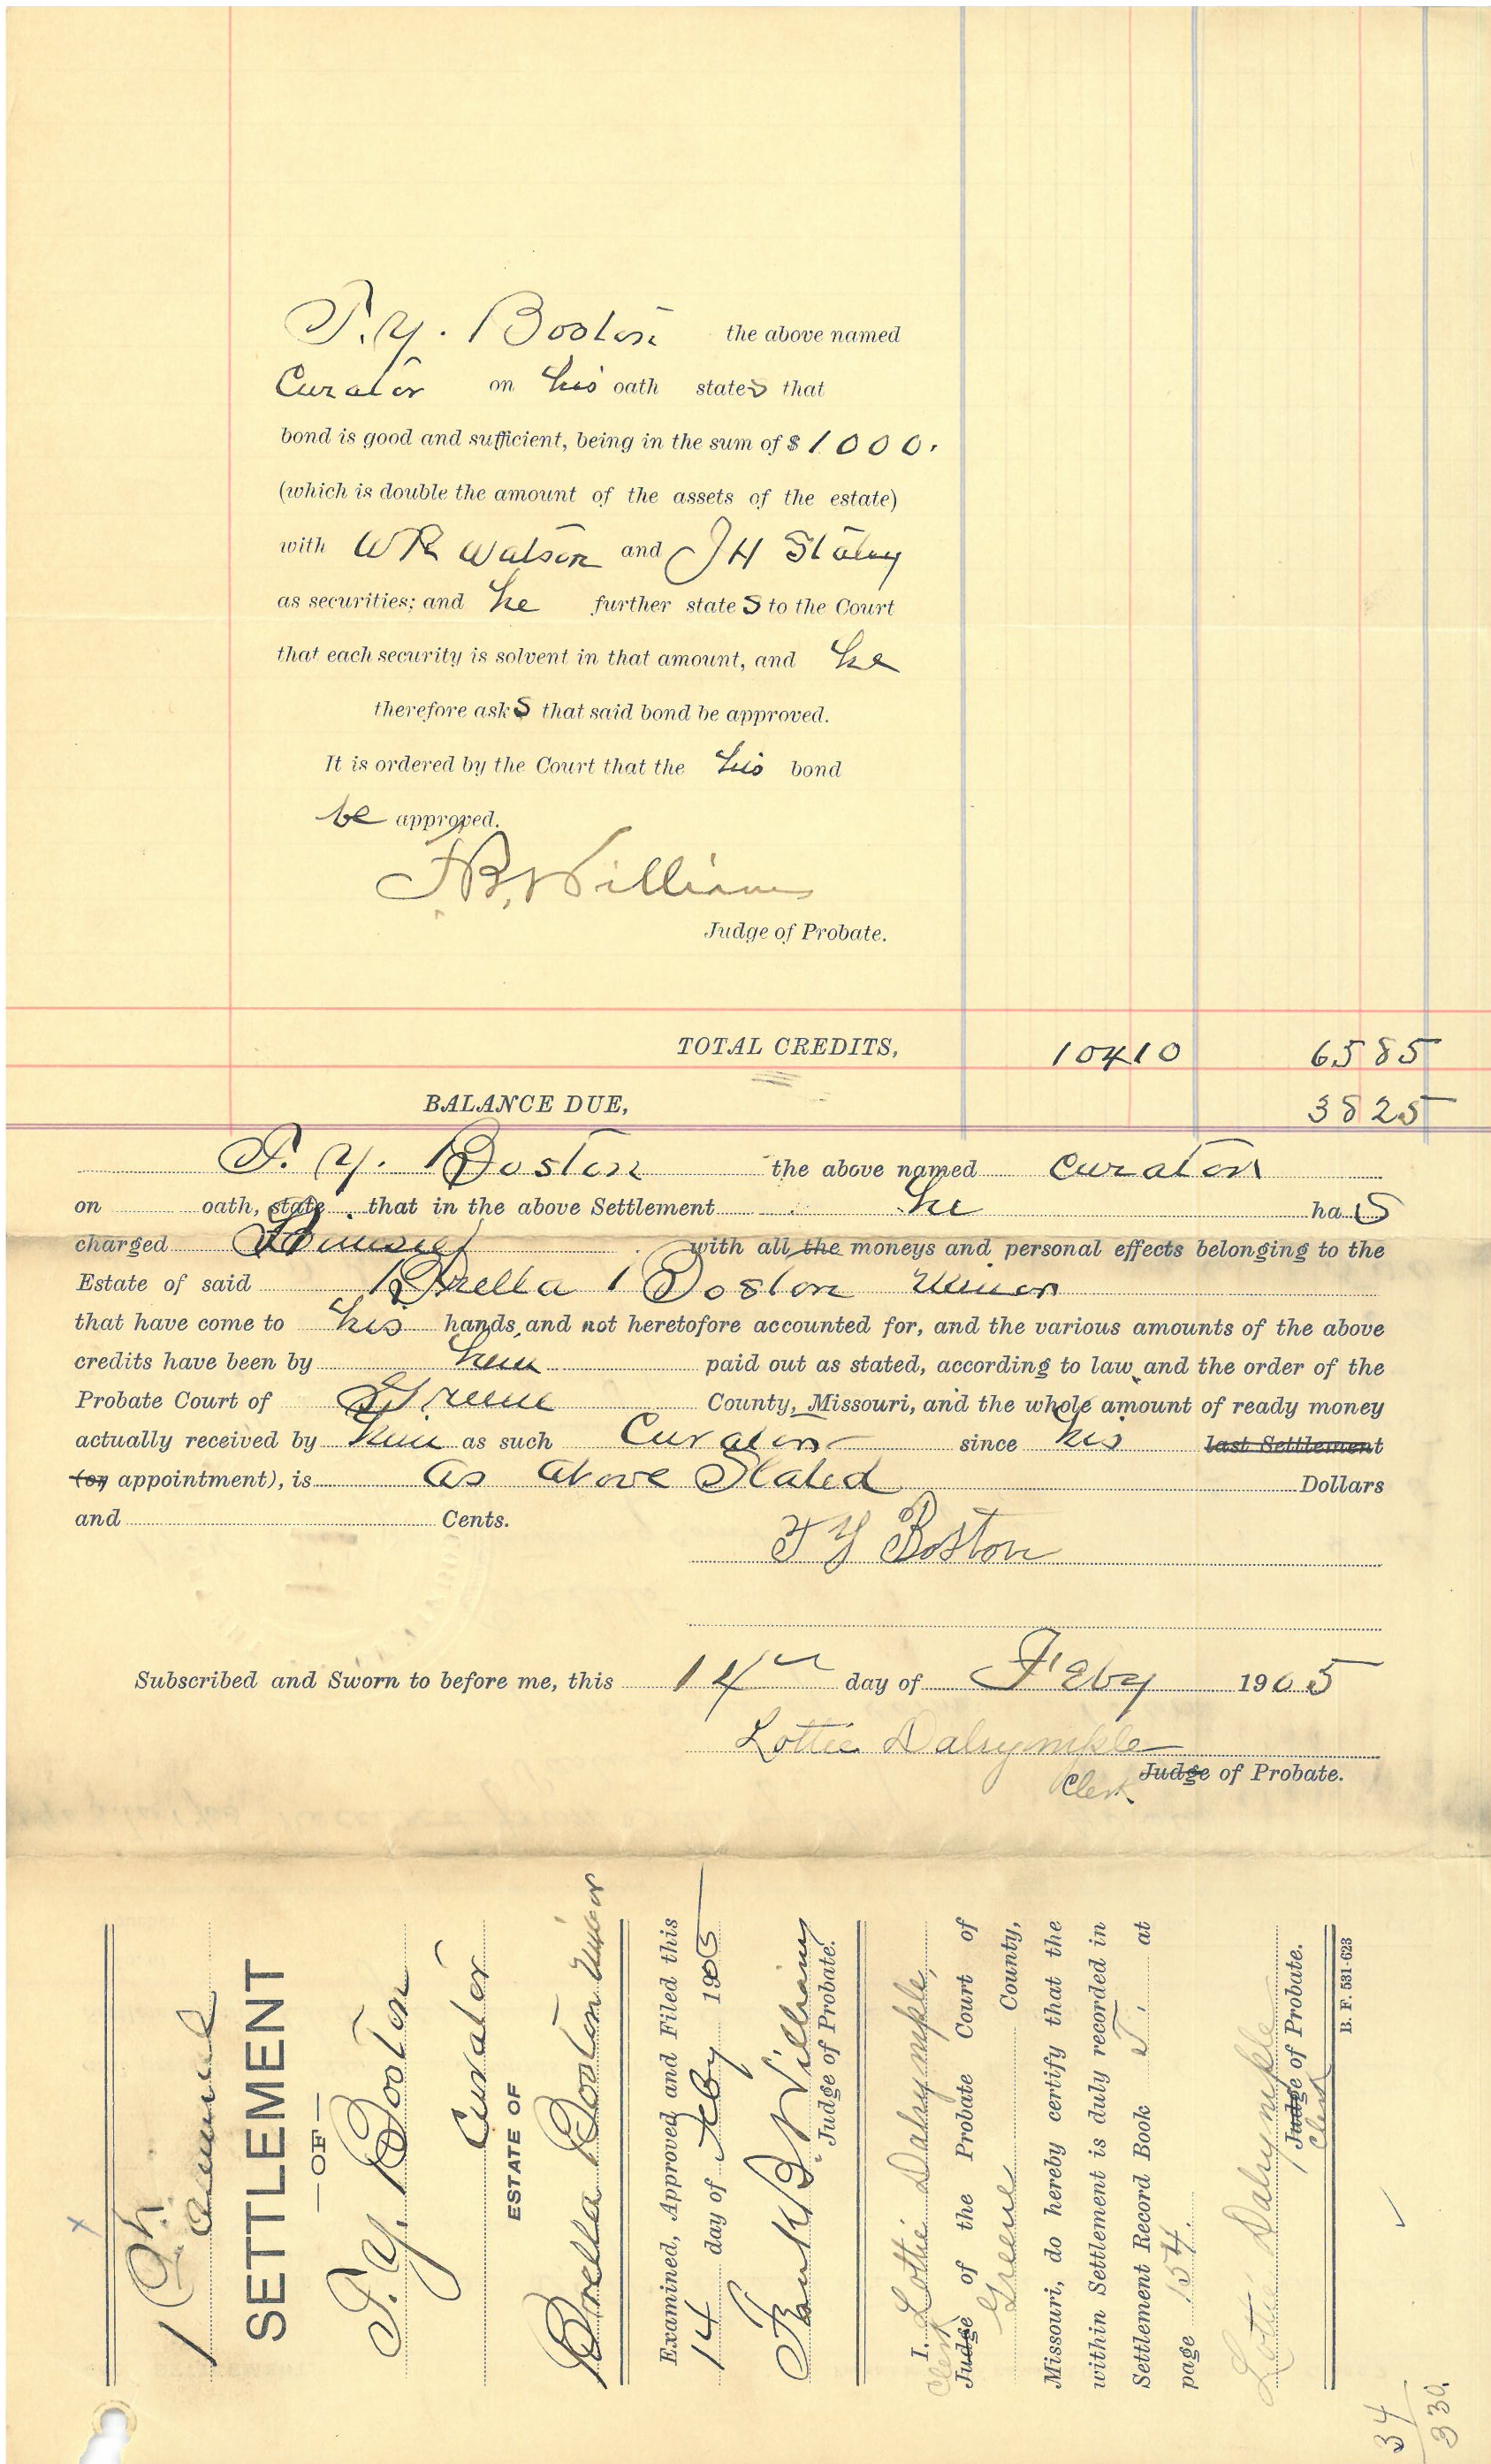 T. Y. Boston the above named
Curator on his oath states that
bond is good and sufficient, being in the sum of $ 1000.
(which is double the amount of the assets of the estate)
with W R Watson and J H Staley
as securities; and he further state S to the Court
that each security is solvent in that amount, and he
therefore ask S that said bond be approved.
It is ordered by the Court that the his bond
be approved.
J. B. Williams
Judge of Probate.
TOTAL CREDITS, 10410 6585
BALANCE DUE, 3825
T. Y. Boston the above named Curator
on oath, state that in the above Settlement he ha S
charged himself with all the moneys and personal effects belonging to the
Estate of said Orella Boston Minor
that have come to his hands, and not heretofore accounted for, and the various amounts of the above
credits have been by him paid out as stated, according to law and the order of the
Probate Court of Greene County, Missouri, and the whole amount of ready money
actually received by him as such Curator since his last Settlement
(or appointment), is As Above Stated Dollars
and Cents.
T Y Boston
Subscribed and Sworn to before me, this 14th day of Feby 1905
Lottie Dalrymple
Clerk Judge of Probate.
1
Annual
SETTLEMENT
—OF—
T. Y. Boston
Curator
ESTATE OF
Orella Boston Minor
Examined, Approved and Filed this
14 day of Feby 1905
Frank B. Williams
Judge of Probate.
I, Lottie Dalrymple,
Clerk Judge of the Probate Court of
Greene County,
Missouri, do hereby certify that the
within Settlement is duly recorded in
Settlement Record Book T, at
page 154.
Lottie Dalrymple
Judge of Probate.
Clerk
B. F. 531-623
34
330